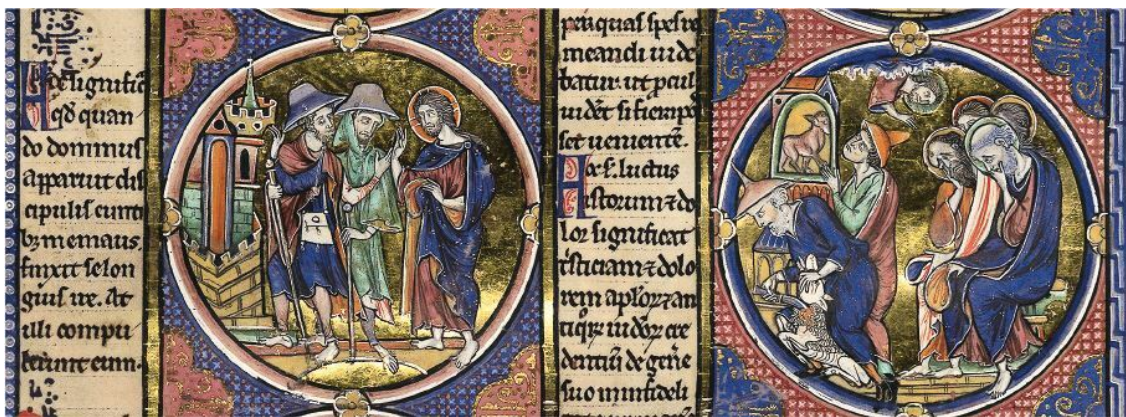 signific̄
qd quan
do dominus
apparuit dis
cipulis eunti
bꝫ in emaus.
finxit se lon
gius ire. At
illi compu
lerunt eum.
per quas spes re
meandi uide
batur. ut pcul
uidēt si fieri pos
set uenientē.
luctus
istorum ⁊ do
lor significat
tͥsticiam ⁊ dolo
rem aploꝝ ⁊ an
tiqꝝ iudeoꝝ cre
dentiū de gēne
suo infideli